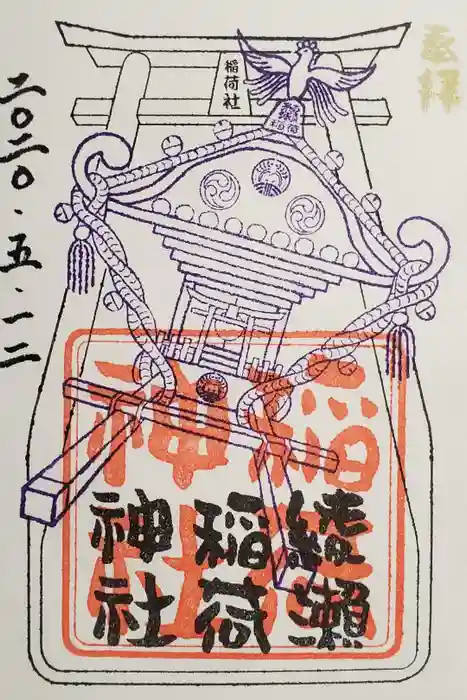 奉拝
稲荷社
綾瀬
稲荷
綾瀬
稲荷
神社
稲荷
神社
二〇二〇・五・一二